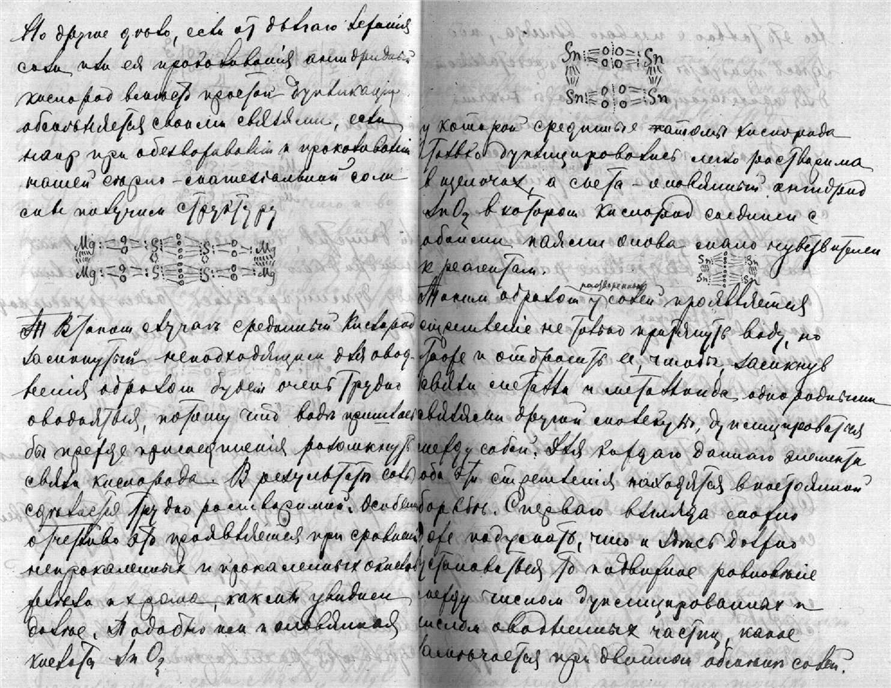 Но другое дело, если от долгаго лежанія
соли или ея прокаливанія ангидридный
кислород вместо простой дупликаціи
обменяется своими связями, если
напр при обезвоживаніи и прокаливаніи
нашей серно-магнезіальной соли
мы получим структуру
Mg O S S O Mg
Mg O S S O Mg
В таком случае срединный кислород
замкнутый неподходящим для овод-
ненія образом будет очень трудно
оводняться, потому что воде пришлось
бы прежде присоединенія разомкнуть
связи кислорода. В результате соль
сделается трудно растворимой. Особенно
отчетливо это проявляется при сравненіи
непрокаленных и прокаленных окислов
железа и хрома, как мы увидим
далее. Подобно им и оловянная
кислота SnO2
Sn O O Sn
Sn O O Sn
у которой срединные атомы кислорода
только дуплицировались легко растворима
в щелочах, а мета-оловянный ангидрид
SnO2 в котором кислород соединен с
обоими паями олова мало чувствителен
к реагентам.
Sn Sn
Sn Sn
Таким образом у растворенных солей проявляется
стремленіе не только притянуть воду, но
также и отбросить ее, чтобы, замкнув
связи металла и металлоида однородными
связями другой молекулы, дуплицироваться
между собой. Для каждаго даннаго элемента
оба эти стремленія находятся в постоянной
борьбе. С перваго взгляда можно
даже подумать, что и здесь должно
установиться то подвижное равновесіе
между числом дуплицированных и
числом оводненных частиц, какое
замечается при двойном обмене солей.